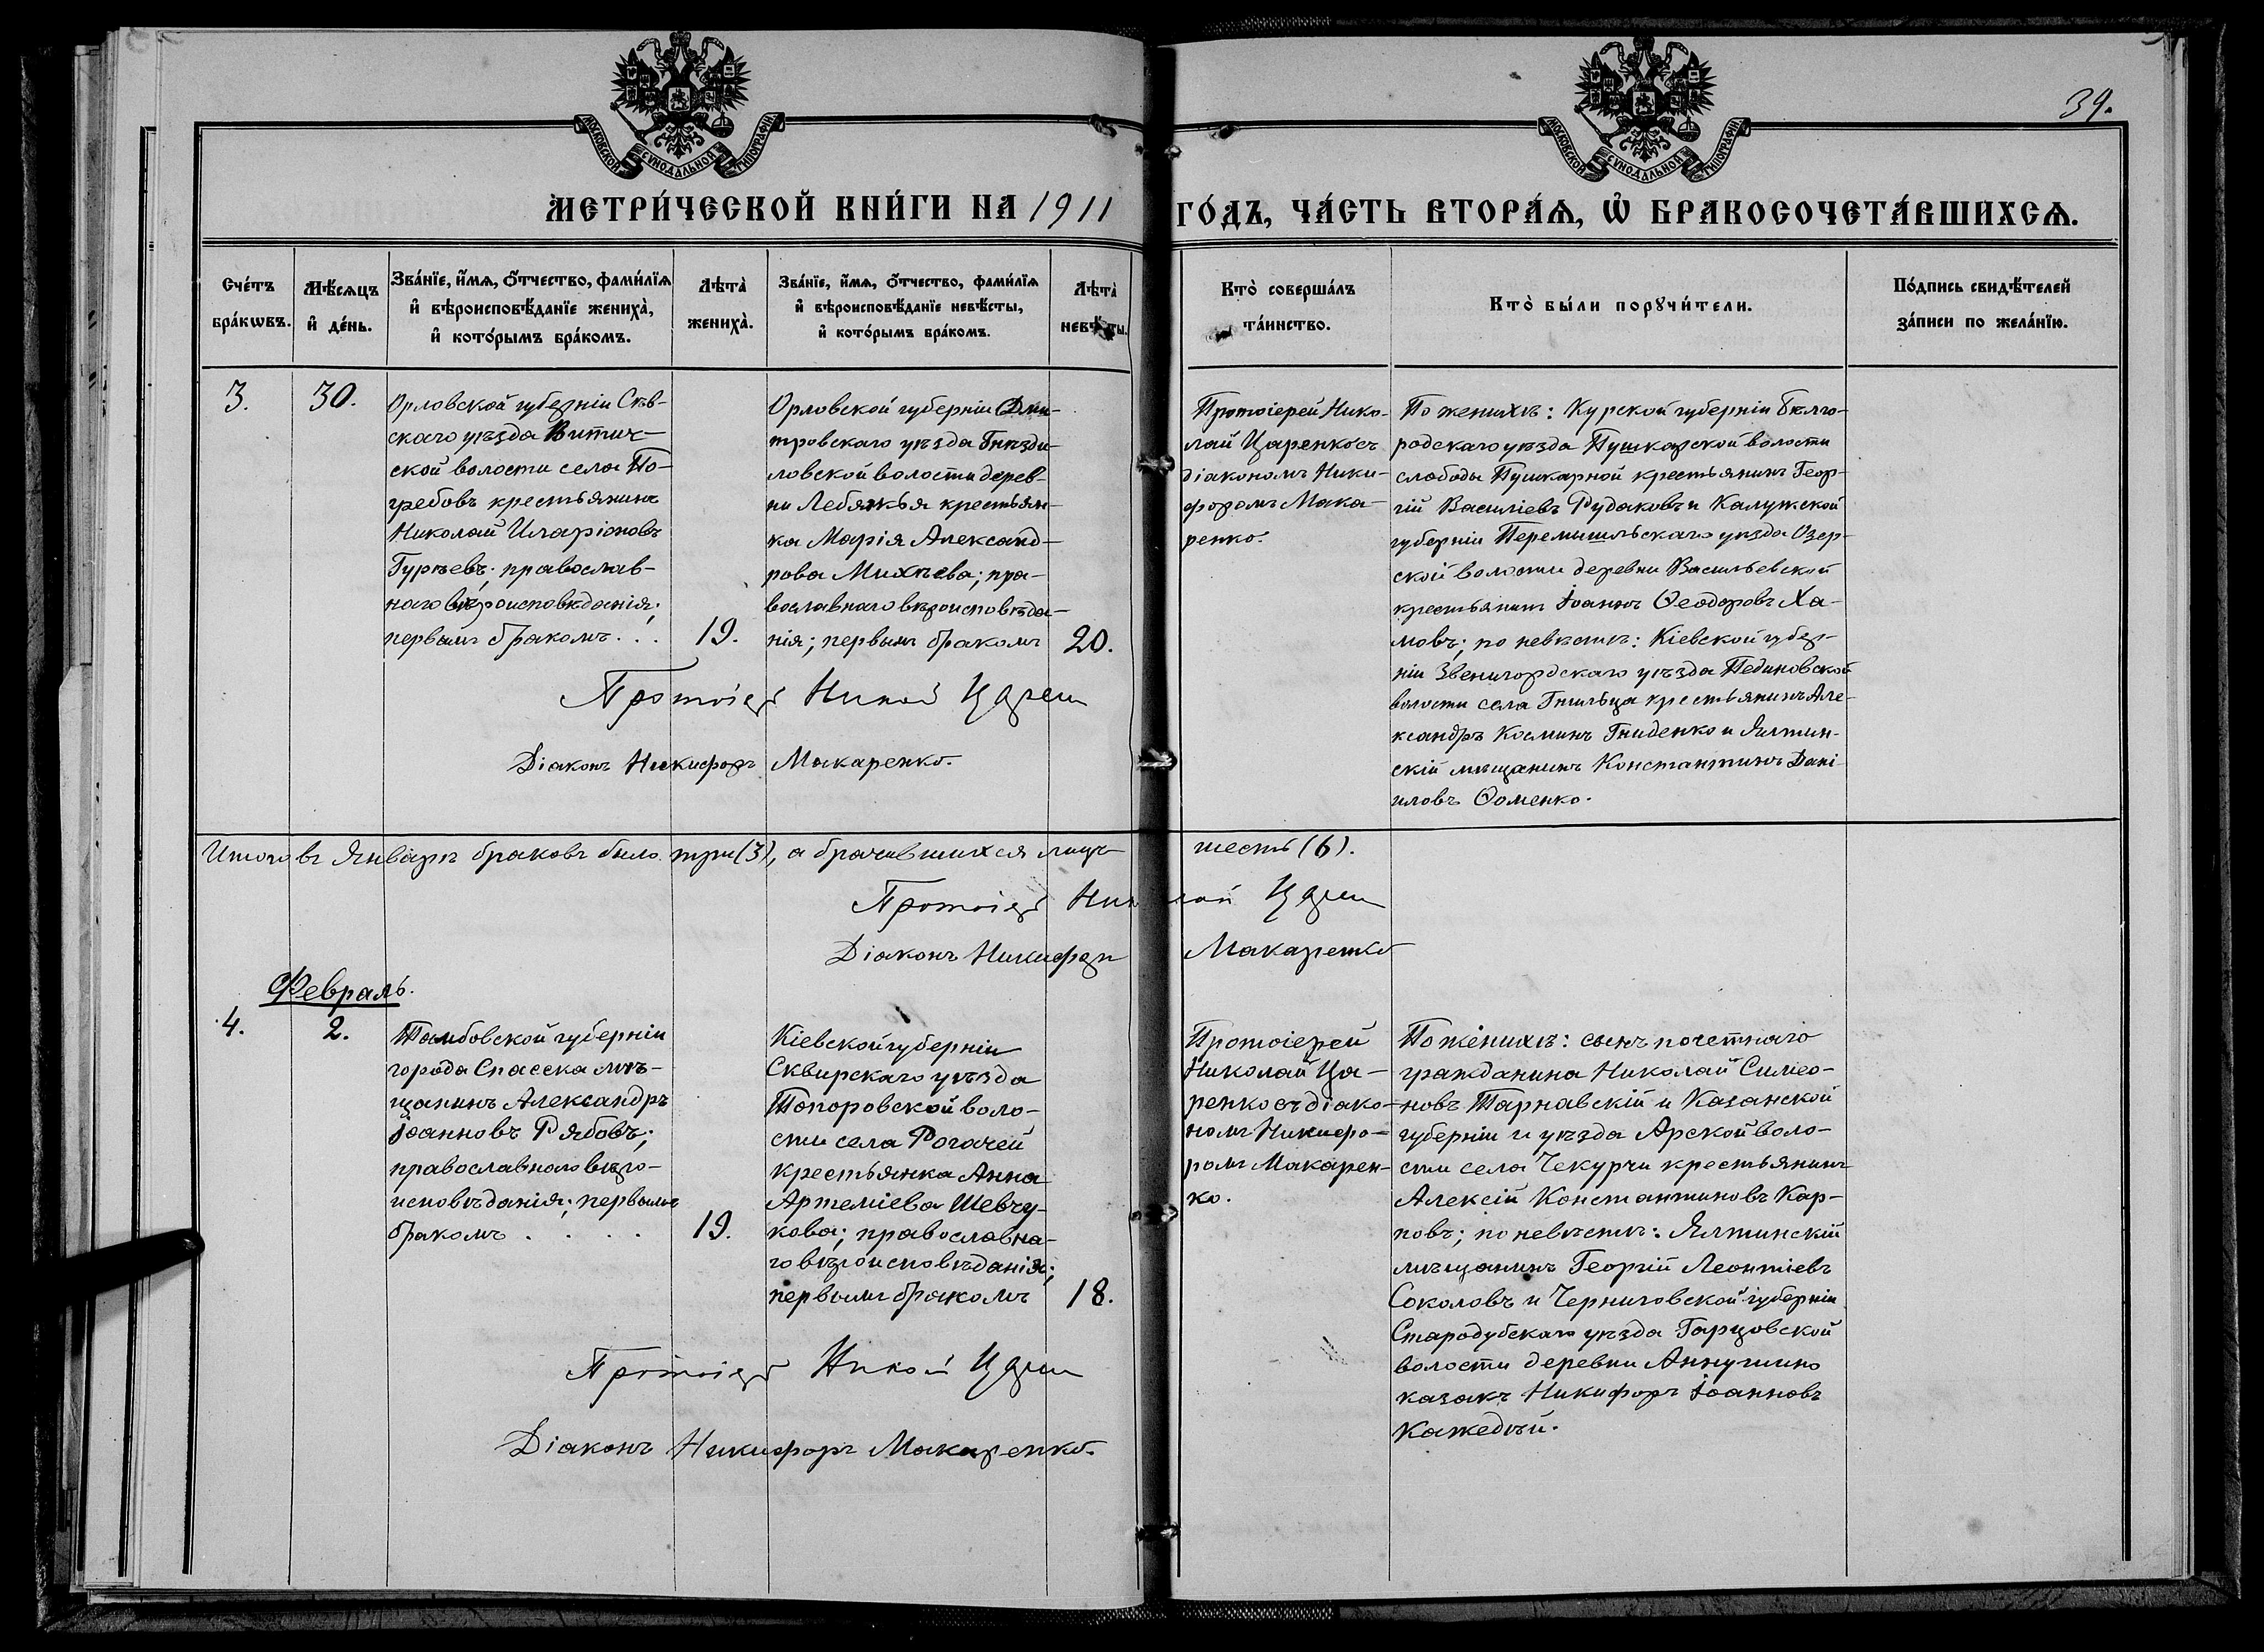 МОСКОВСКОЙ СѴНОДАЛЬНОЙ ТИПОГРАФІИ
МОСКОВСКОЙ СѴНОДАЛЬНОЙ ТИПОГРАФІИ
39.
МЕТРИ́ЧЕСКОЙ КНИ́ГИ НА 1911
ГО́ДЪ, ЧА́СТЬ ВТОРА́Ѧ, Ѡ҆ БРАКОСОЧЕТА́ВШИХСѦ.
Сче́тъ
бра́кѡвъ.
Мѣ́сѧцъ
и҆ де́нь.
Зва́нїе, и҆́мѧ, ѻ҆́тчество, фами́лїѧ
и҆ вѣроисповѣ́данїе жениха̀,
и҆ кото́рымъ бра́комъ.
Лѣта̀
жениха̀.
Зва́нїе, и҆́мѧ, ѻ҆́тчество, фами́лїѧ
и҆ вѣроисповѣ́данїе невѣ́сты,
и҆ кото́рымъ бра́комъ.
Лѣта̀
невѣ́сты.
Кто̀ соверша́лъ
та́инство.
Кто̀ бы́ли порꙋчи́тели.
По́дпись свидѣ́телей
за́писи по жела́нїю.
3.
30.
Орловской губерніи Сѣв-
скаго уѣзда Витич-
ской волости села По-
гребовъ крестьянинъ
Николай Иларіоновъ
Гурѣевъ; православ-
наго вѣроисповѣданія;
первымъ бракомъ. . .
19.
Орловской губерніи Дми-
тровскаго уѣзда Гнѣзди-
ловской волости дерев-
ни Лебяжья крестьян-
ка Марія Александ-
рова Михѣева; пра-
вославнаго вѣроисповѣда-
нія; первымъ бракомъ
20.
Протоіерей Нико-
лай Царенко съ
діакономъ Ники-
форомъ Мака-
ренко.
По женихѣ: Курской губерніи Бѣлго-
родскаго уѣзда Пушкарской волости
слободы Пушкарной крестьянинъ Геор-
гій Василіевъ Рудаковъ и Калужской
губерніи Перемышльскаго уѣзда Озер-
ской волости деревни Васильевской
крестьянинъ Іоаннъ Ѳеодоровъ Ха-
мовъ; по невѣстѣ: Кіевской губер-
ніи Звенигородскаго уѣзда Пединовской
волости села Гнильца крестьянинъ Але-
ксандръ Косминъ Гниденко и Ялтин-
скій мѣщанинъ Константинъ Дані-
иловъ Ѳоменко.
Протоіер Никой Царен
Діаконъ Никифоръ Макаренко.
Итого въ Январѣ браковъ было три (3), а брачившихся лицъ шесть (6).
Протоіер Николай Царен
Діаконъ Никифоръ Макаренко
Февраль.
4.
2.
Тамбовской губерніи
города Спасска мѣ-
щанинъ Александръ
Іоанновъ Рябовъ;
православнаго вѣро-
исповѣданія; первымъ
бракомъ . . . .
19.
Кіевской губерніи
Сквирскаго уѣзда
Топоровской воло-
сти села Рогачей
крестьянка Анна
Артеміева Шевчу-
кова; православна-
го вѣроисповѣданія;
первымъ бракомъ
18.
Протоіерей
Николай Ца-
ренко съ діако-
номъ Никифо-
ромъ Макарен-
ко.
По женихѣ: сынъ почетнаго
гражданина Николай Симео-
новъ Тарнавскій и Казанской
губерніи и уѣзда Арской воло-
сти села Чекурчи крестьянинъ
Алексій Константиновъ Кар-
повъ; по невѣстѣ: Ялтинскій
мѣщанинъ Георгій Леонтіевъ
Соколовъ и Черниговской губерніи
Стародубскаго уѣзда Гарцовской
волости деревни Аннушино
казакъ Никифоръ Іоанновъ
Кажедѣй.
Протоіер Никой Царен
Діаконъ Никифоръ Макаренко.